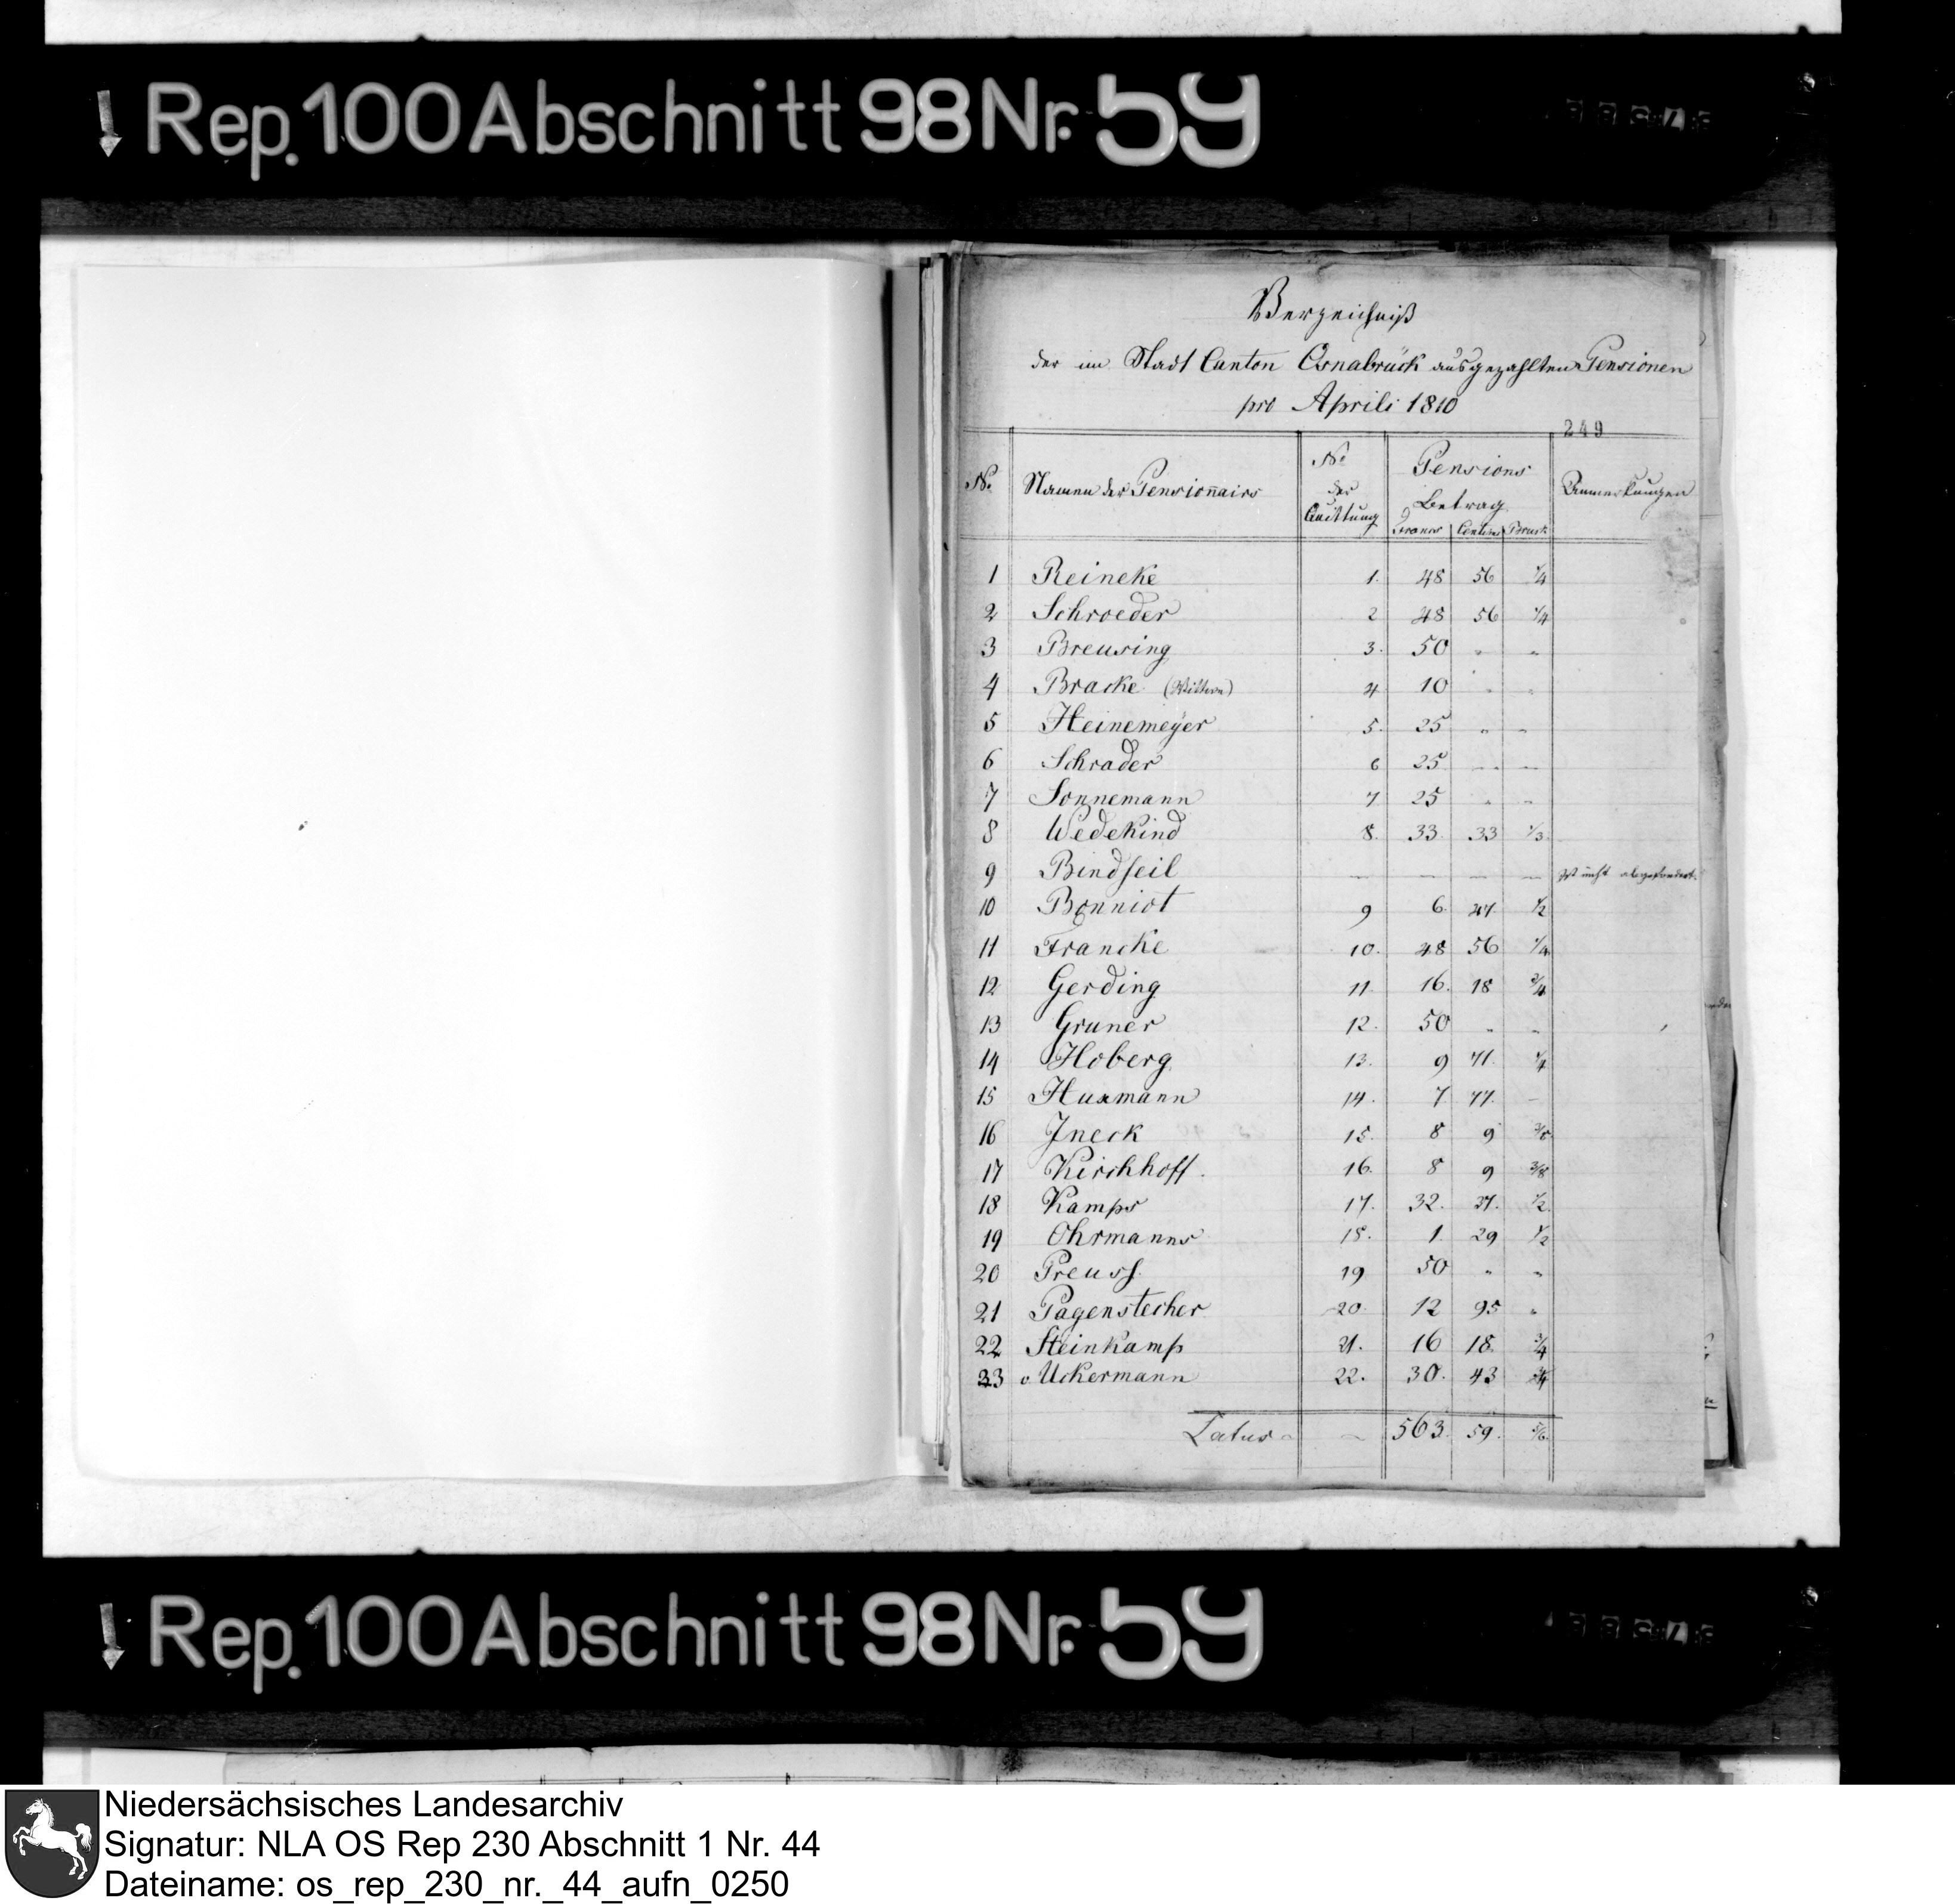 Rep. 100 Abschnitt 98 Nr. 59
Verzeichniß
der im Stadt Canton Osnabrück ausgezahlten Pensionen
pro Aprili 1810
249
No. Namen der Pensionnairs No der Quittung Pensions Betrag Francs Centim Bruch Anmerkungen
1 Reineke 1. 48 56 1/4
2 Schroeder 2 48 56 1/4
3 Breusing 3. 50 " "
4 Bracke (Wittwe) 4 10 " "
5 Heinemeÿer 5. 25 " "
6 Schrader 6 25 " "
7 Sonnemann 7 25 " "
8 Wedekind 8. 33. 33 1/3
9 Bindseil — — — — ist nicht abgefordert.
10 Bonniot 9 6. 47 1/2
11 Francke 10. 48 56 1/4
12 Gerding 11 16. 18 3/4
13 Gruner 12. 50 " "
14 Hoberg 13. 9 71. 1/4
15 Husmann 14. 7. 77. —
16 Jneck 15. 8 9 3/8
17 Kirchhoff. 16. 8 9 3/8
18 Kamps 17. 32. 37. 1/2
19 Ohrmanns 18. 1. 29 1/2
20 Preuss. 19 50 " "
21 Pagenstecher 20. 12 95 "
22 Steinkamp 21. 16 18. 3/4
23 v. Uckermann 22. 30. 43 3/4
Latus 563. 59. 5/6
Rep. 100 Abschnitt 98 Nr. 59
Niedersächsisches Landesarchiv
Signatur: NLA OS Rep 230 Abschnitt 1 Nr. 44
Dateiname: os_rep_230_nr._44_aufn_0250